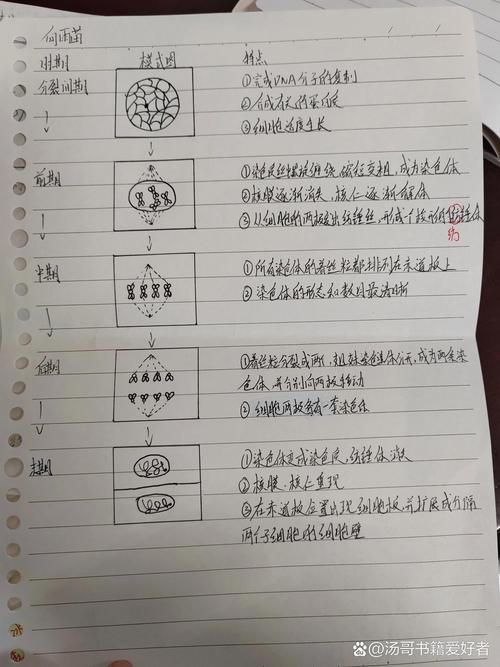 何雨苗
周期 模式图 特点
分裂间期 ①完成DNA分子的复制
②合成有关的蛋白质
③细胞适度生长
前期 ①染色质丝螺旋缠绕,缩短变粗,成为染色体
②核膜逐渐消失,核仁逐渐解体
③从细胞的两极发出纺锤丝,形成一个梭形的纺锤体
纺
中期 ①所有染色体的着丝粒都排列在赤道板上
②染色体的形态和数目最清晰
后期 ①着丝粒分裂成两个,姐妹染色单体分开,成为两条染
色体,并分别向两极移动
②细胞两极各有一套染色体
末期 ①染色体变成染色质,纺锤体消失
②核膜、核仁重现
③在赤道板位置出现细胞板,并扩展成分隔
两个子细胞的细胞壁
@汤哥书籍爱好者